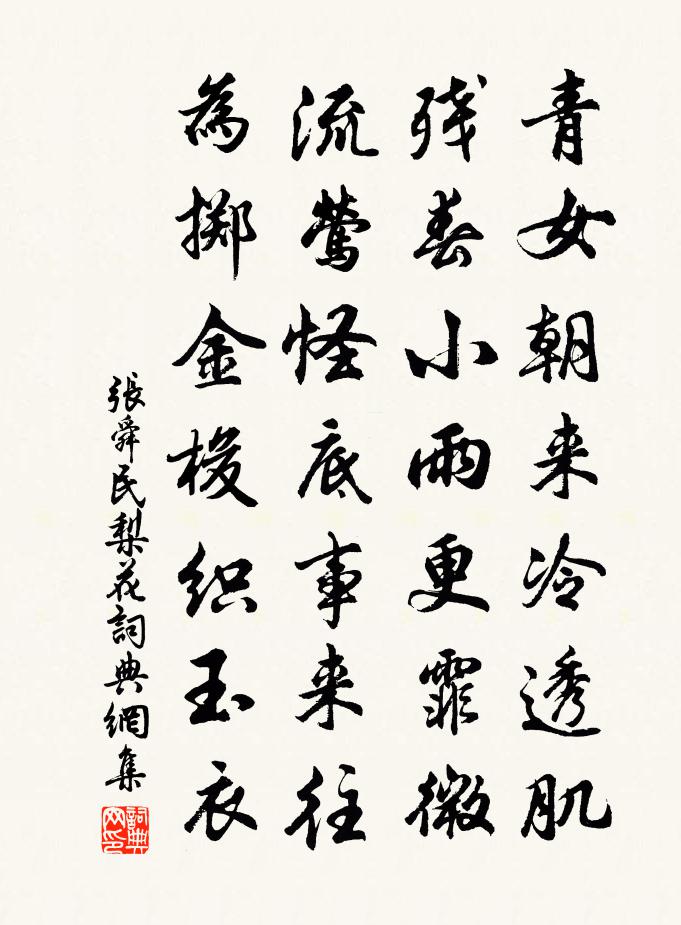 青女朝来冷透肌
残春小雨更霏微
流莺怪底事来往
為掷金梭织玉衣
張舜民梨花詞典網集
詞典网印